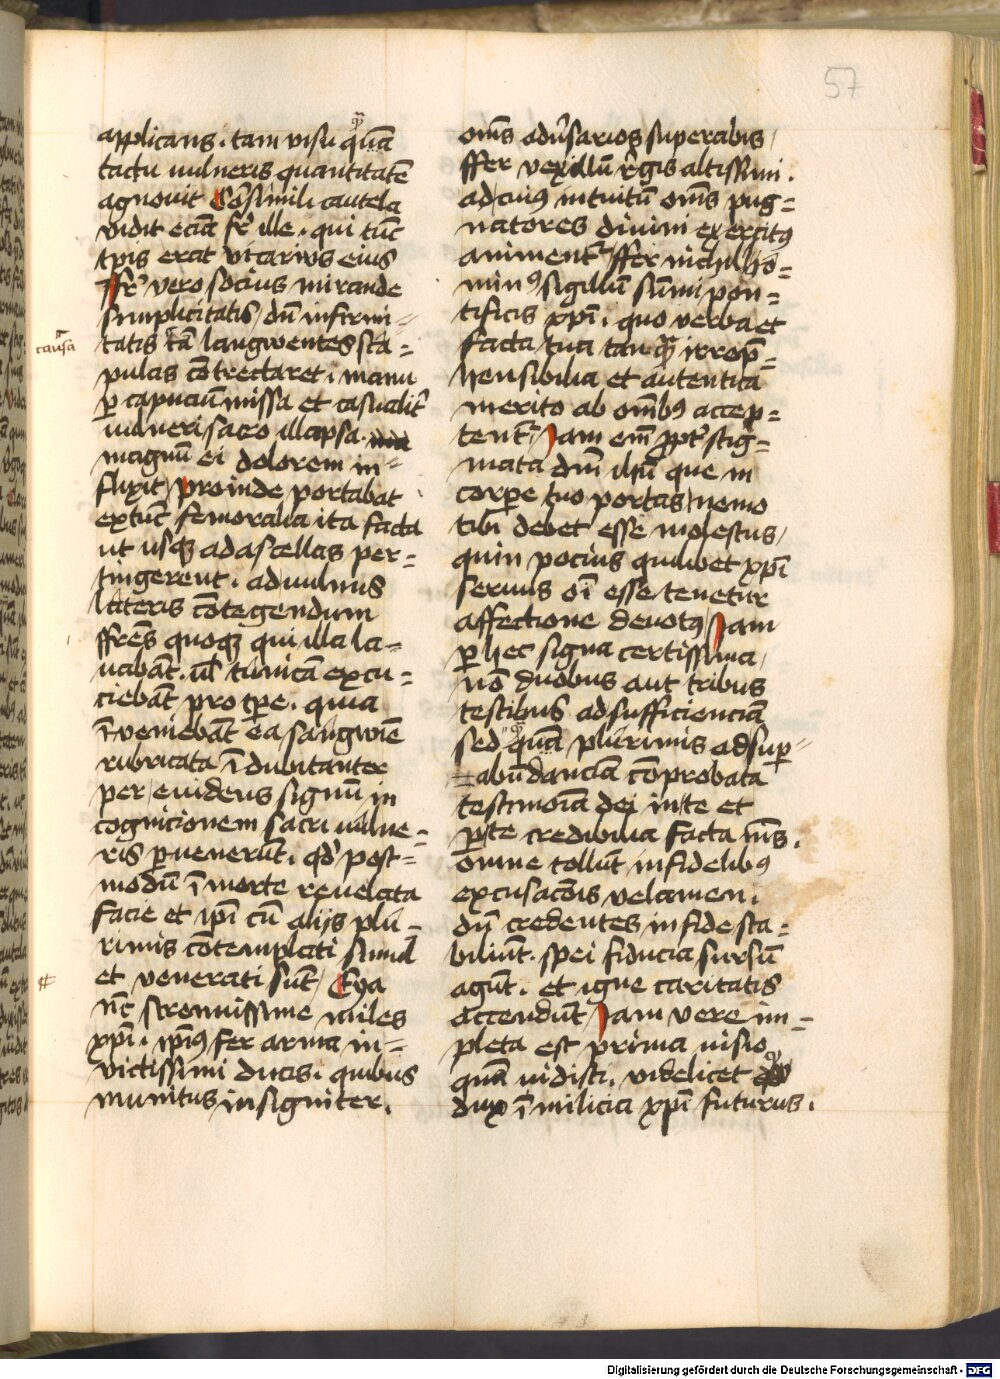 57
applicans. tam visu quā
tactu vulneris quantitatē
agnovit Cōsimili cautela
vidit eciā fr̄ ille. qui tūc
tpis erat vicarius eius
ffr̄ vero socius mirande
simplicitatis/ dū infirmi=
causa
tatis tā langwentes sca=
pulas cōtrectaret. manu
p̲ capuciū missa et casualit̄
vulneri sacro illapsa.
magnū ei dolorem in=
flixit/ proinde portabat
extūc femoralia ita facta
ut usqꝫ ad ascellas per=
tingerent. ad vulnus
lateris cōtegendum
ffrēs quoqꝫ qui illa la=
uabāt. ul̄ tunicā excu=
ciebāt pro tp̄e. quia
īveniebāt ea sāgwīe
rubricata ī dubitanter
per euidens signū in
cognicionem sacri vulne=
ris p̲venerūt. qd̓ post=
modū ī morte reuelata
facie et ip̄i cū alijs plu=
rimis cōtemplati simul
et venerati sūt/ Eya
nūc strennissime miles
xp̄i. ip̄iꝰ fer arma in=
victissimi ducis. quibus
munitus insigniter.
om̄s adūsarios superabis/
ffer vexillū r̄gis altissimi.
ad cuiꝰ intuitū om̄s pug=
natores diuini exercitꝰ
animentᷣ ffer nichilho=
minꝰ sigillū sūmi pon=
tificis xp̄i. quo verba et
facta tua tanqꝫ̄ irrep̄=
hensibilia et autentica
merito ab om̄ibꝰ accep=
tentᷣ Jam em̄ ꝓpt̓ stig=
mata dn̄i ih̄u que in
corpe tuo portas/ nemo
tibi debet esse molestus/
quin pocius quilibet xp̄i
seruus oī esse tenetur
affectione devotꝰ/ Jam
p̲ hec signa certissima/
nō duobus aut tribus
testibus ad sufficienciā
sed quā plurimis ad sup̲=
=abundanciā cōprobata
testimoīa dei in te et
p̲ te credibilia facta nīs.
omne tollūt infidelibꝰ
excusacōis velamen.
dū credentes in fide sta=
biliūt. spei fiducia sursū
agūt. et igne caritatis
accendūt/ Jam vere im=
pleta est prima uisio
quā uidisti. videlicet
dux ī milicia xp̄i futurus.
Digitalisierung gefördert durch die Deutsche Forschungsgemeinschaft - DFG